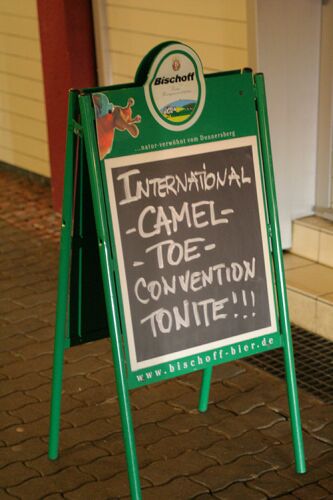 Bischoff
...natur-verwöhnt vom Donnersberg
INTERNATIONAL
-CAMEL-
-TOE-
CONVENTION
TONITE!!!
www.bischoff-bier.de